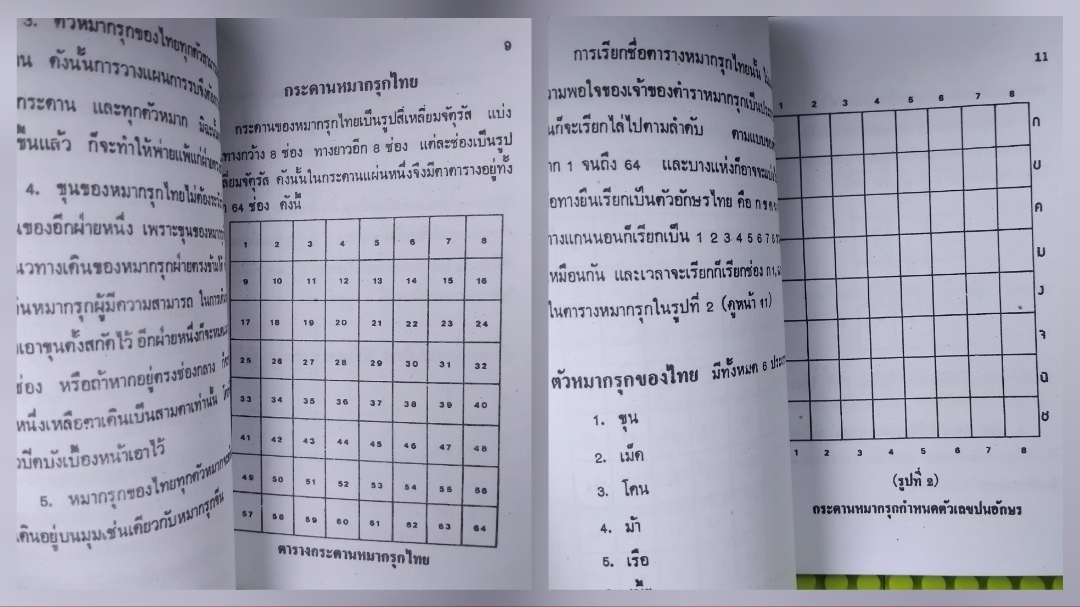 3. ตัวหมากรุกของไทยทุกตัว
ดังนั้นการวางแผนการรบจึงต้อง
กระดาน และทุกตัวหมาก
ขึ้นแล้ว ก็จะทำให้พ่ายแพ้แก่
4. ขุนของหมากรุกไทยไม่ต้อง
ของอีกฝ่ายหนึ่ง เพราะขุนของ
ทางเดินของหมากรุกฝ่ายตรงข้ามได้
หมากรุกผู้มีความสามารถ ในการ
เอาขุนตั้งสกัดไว้ อีกฝ่ายหนึ่งก็จะ
ช่อง หรือถ้าหากอยู่ตรงช่องกลาง
หนึ่งเหลือตาเดินเป็นสามตาเท่านั้น
ปิดบังเบื้องหน้าเอาไว้
5. หมากรุกของไทยทุกตัวหมาก
เดินอยู่บนมุมเช่นเดียวกับหมากรุกจีน
9
กระดานหมากรุกไทย
กระดานของหมากรุกไทยเป็นรูปสี่เหลี่ยมจัตุรัส แบ่ง
ทางกว้าง 8 ช่อง ทางยาวอีก 8 ช่อง แต่ละช่องเป็นรูป
เหลี่ยมจัตุรัส ดังนั้นในกระดานแผ่นหนึ่งจึงมีตาตารางอยู่ทั้ง
64 ช่อง ดังนี้
1 2 3 4 5 6 7 8
9 10 11 12 13 14 15 16
17 18 19 20 21 22 23 24
25 26 27 28 29 30 31 32
33 34 35 36 37 38 39 40
41 42 43 44 45 46 47 48
49 50 51 52 53 54 55 56
57 58 59 60 61 62 63 64
ตารางกระดานหมากรุกไทย
การเรียกชื่อตารางหมากรุกไทยนั้น
ความพอใจของเจ้าของตำราหมากรุกเป็น
ก็จะเรียกไล่ไปตามลำดับ ตามแบบ
1 จนถึง 64 และบางแห่งก็อาจจะ
ทางยืนเรียกเป็นตัวอักษรไทย คือ ก ข ค
ทางแนวนอนก็เรียกเป็น 1 2 3 4 5 6 7 8
เหมือนกัน และเวลาจะเรียกก็เรียกช่อง ก 1,
ในตารางหมากรุกในรูปที่ 2 (ดูหน้า 11)
ตัวหมากรุกของไทย มีทั้งหมด 6
1. ขุน
2. เม็ด
3. โคน
4. ม้า
5. เรือ
11
1 2 3 4 5 6 7 8
ก
ข
ค
ฆ
ง
จ
ฉ
ช
1 2 3 4 5 6 7 8
(รูปที่ 2)
กระดานหมากรุกกำหนดตัวเลขปนอักษร